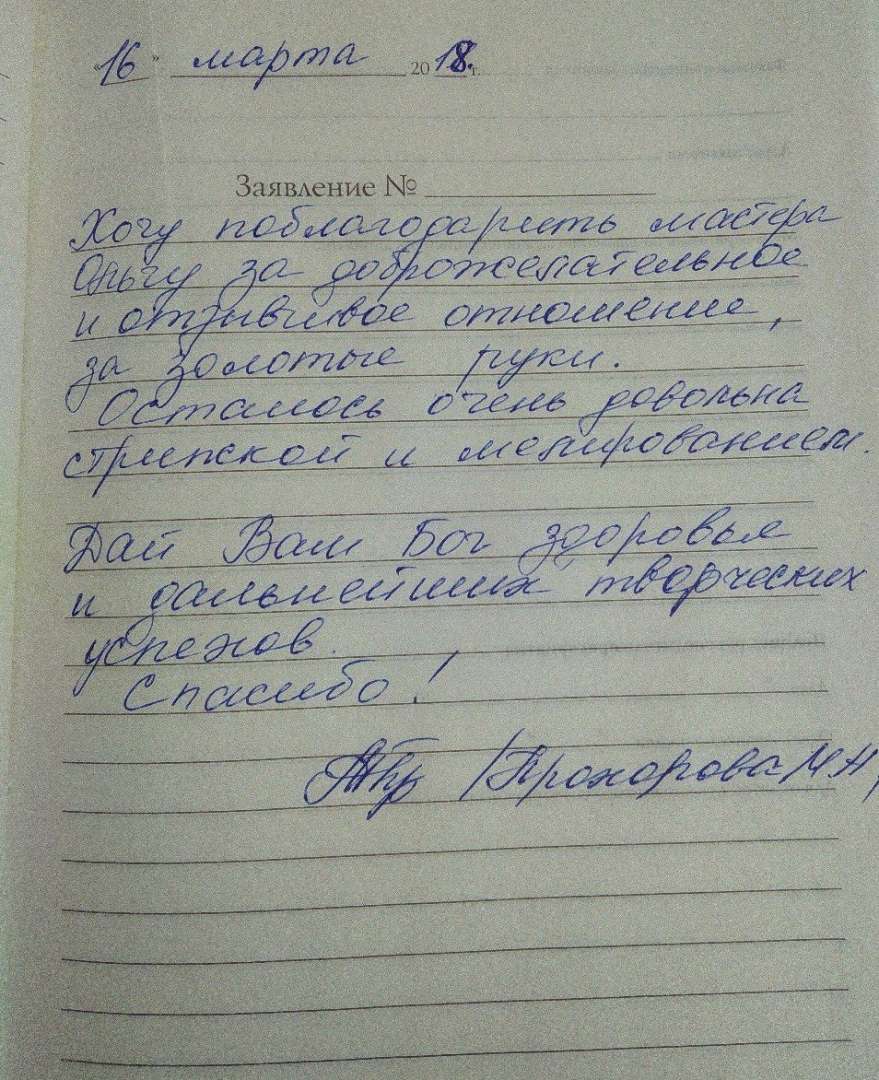 «16» марта 2018 г.
Заявление №
Хочу поблагодарить мастера
Ольгу за доброжелательное
и отзывчивое отношение,
за золотые руки.
Осталось очень довольна
стрижкой и мелированием.
Дай Вам Бог здоровья
и дальнейших творческих
успехов.
Спасибо!
/Прохорова М Н/